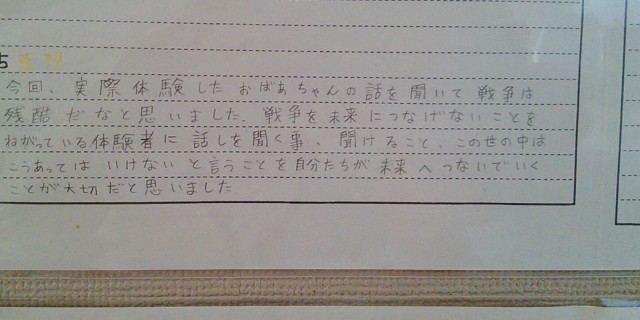 5 感想
今回、実際体験したおばあちゃんの話を聞いて戦争は
残酷だなと思いました。戦争を未来につなげないことを
ねがっている体験者に話しを聞く事、聞けること、この世の中は
こうあってはいけないと言うことを自分たちが未来へつないでいく
ことが大切だと思いました